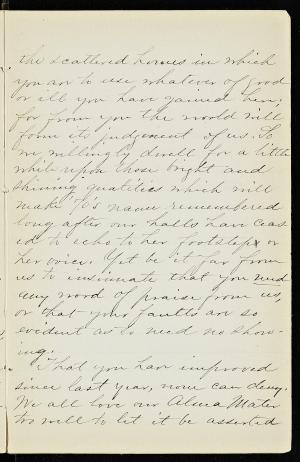 the scattered homes in which
you are to use whatever of good
or ill you have gained here;
for from you the world will
form its judgement of us. So
we willingly dwell for a little
while upon those bright and
shining qualities which will
make '76's name remembered
long after our halls have ceas
ed to echo to her footsteps or
her voice. Yet be it far from
us to insinuate that you need
any word of praise from us,
or that your faults are so
evident as to need no show-
ing.
That you have improved
since last year, none can deny.
We all love our Alma Mater
too well to let it be asserted